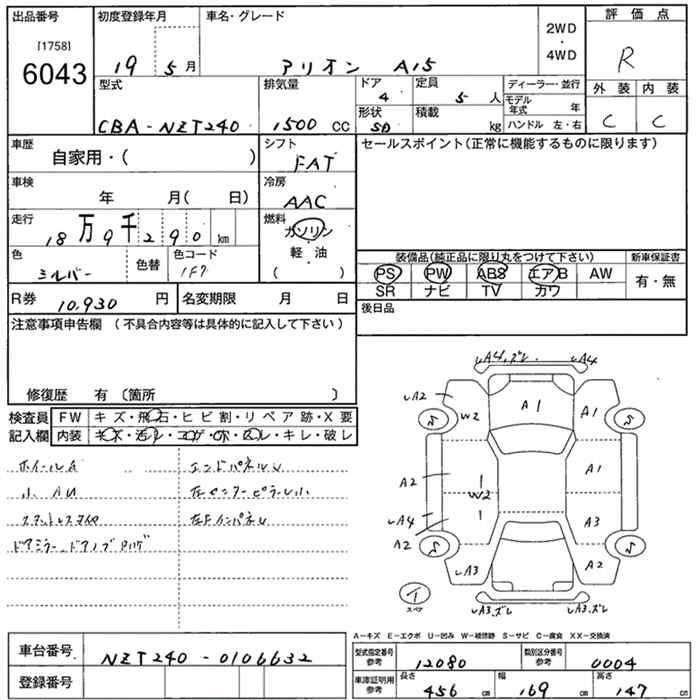 出品番号 初度登録年月 車名・グレード 2WD・4WD 評価点
[1758]
6043 19 5月 アリオン A15 R
型式 排気量 ドア 4 定員 5人 ディーラー・並行 外装 内装
CBA-NZT240 1500 CC 形状 SD 積載 kg モデル年式 年 ハンドル 左・右 C C
車歴 自家用・( ) シフト FAT セールスポイント(正常に機能するものに限ります)
車検 年 月( 日) 冷房 AAC
走行 18万9千290km 燃料 ガソリン・軽油 ( )
色 シルバー 色替 色コード 1F7
装備品(純正品に限り丸をつけて下さい) 新車保証書
PS PW ABS エアB AW 有・無
SR ナビ TV カワ
R券 10,930円 名変期限 月 日 後日品
注意事項申告欄 (不具合内容等は具体的に記入して下さい)
修復歴 有 〔箇所 〕
検査員 FW キズ・飛石・ヒビ割・リペア跡・X要
記入欄 内装 キズ・汚レ・コゲ・穴・スレ・キレ・破レ
ホイールA エンドパネルU
小AU 左センターピラーU小
スタットレスタイヤ 左FインパネU
ドアミラー、ドアノブ
UA4.ズレ UA4
UA2 W2 A1 A1
S S
A2 W2 A1
UA4 A3
A2
S S
UA3 A2
T
スペア
UA3.ズレ UA3.ズレ
A-キズ E-エクボ U-凹み W-補修跡 S-サビ C-腐食 XX-交換済
車台番号 NZT240-0106632 型式指定番号 参考 12080 類別区分番号 参考 0004
登録番号 車庫証明用 参考 長さ 456cm 幅 169cm 高さ 147cm